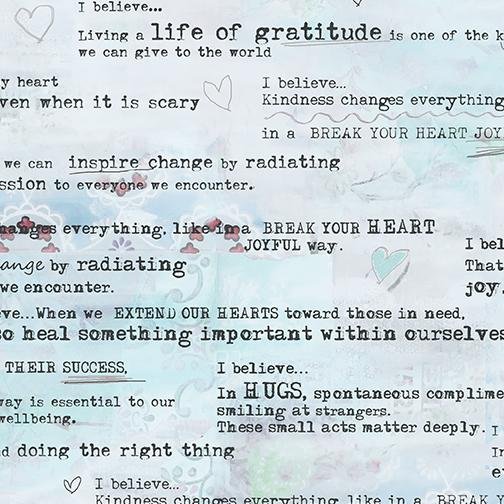 I believe...
Living a life of gratitude is one of the
we can give to the world
heart
when it is scary
I believe...
Kindness changes everything
in a BREAK YOUR HEART
we can inspire change by radiating
to everyone we encounter.
changes everything, like in a BREAK YOUR HEART
JOYFUL way.
by radiating
we encounter.
I
That
joy.
When we EXTEND OUR HEARTS toward those in need,
so heal something important within ourselves
THEIR SUCCESS,
way is essential to our
wellbeing.
I believe...
In HUGS, spontaneous
smiling at strangers.
These small acts matter deeply.
I
In
doing the right thing
I believe...
Kindness changes everything like in a BREAK YOUR